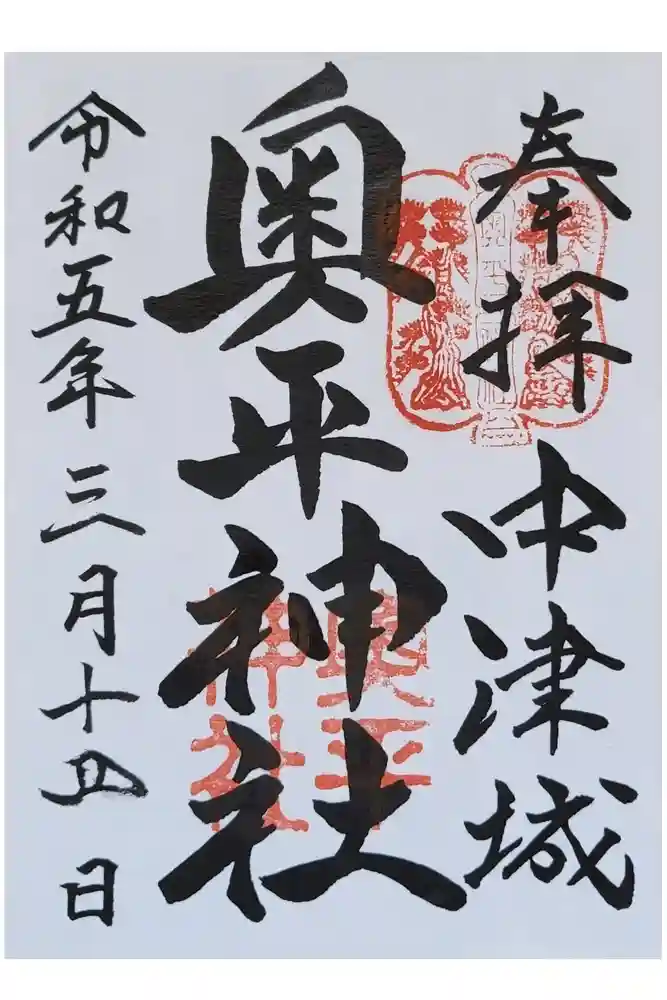 奉拝
中津城
奥平神社
奥平
神社
令和五年三月十五日